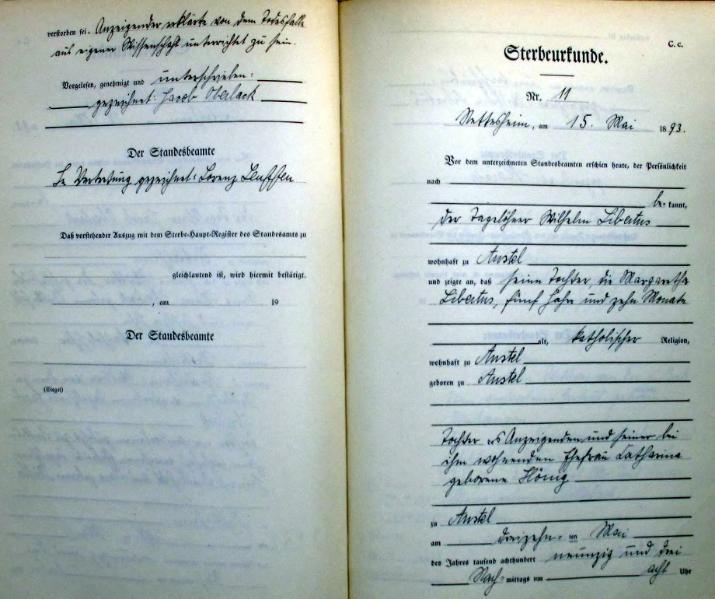 verstorben sei. Anzeigender erklärte von dem Todesfalle
aus eigener Wissenschaft unterrichtet zu sein.
Vorgelesen, genehmigt und unterschrieben:
gezeichnet: Jacob Oberlack
Der Standesbeamte
In Vertretung gezeichnet: Lorenz Leuffen
Daß vorstehender Auszug mit dem Sterbe-Haupt-Register des Standesamts zu
gleichlautend ist, wird hiermit bestätigt.
, am 19
Der Standesbeamte
(Siegel)
C. c.
Sterbeurkunde.
Nr. 11
Nettesheim, am 15. Mai 1893.
Vor dem unterzeichneten Standesbeamten erschien heute, der Persönlichkeit
nach
be- kannt,
der Tagelöhner Wilhelm Libertus
wohnhaft zu Anstel
und zeigte an, daß seine Tochter, die Margaretha
Libertus, fünf Jahre und zehn Monate
alt, katholischer Religion,
wohnhaft zu Anstel
geboren zu Anstel
Tochter des Anzeigenden und seiner bei
ihm wohnenden Ehefrau Catharina
geborene Hönig
zu Anstel
am dreizehn- ten Mai
des Jahres tausend achthundert neunzig und drei
Nach- mittags um acht Uhr